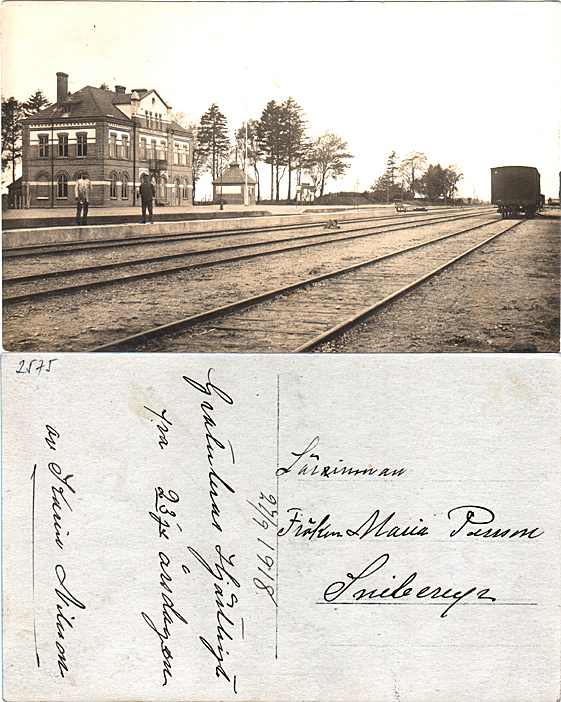 2575
Gratuleras Hjärtligt
på 23je årsdagen
av Karin Nilsson
27/9 1918
Lärarinnan
Fröken Maria Persson
Sniberup